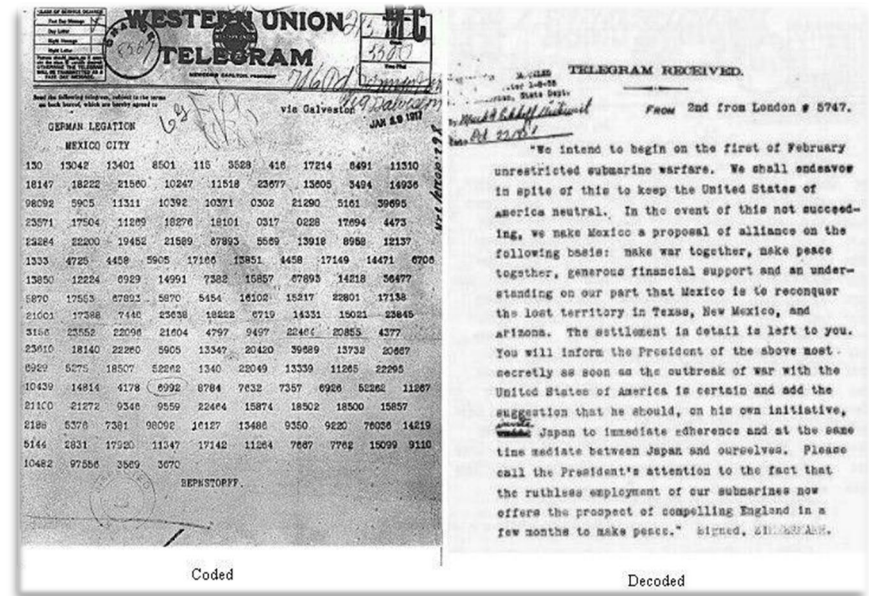 WESTERN UNION
TELEGRAM
NEWCOMB CARLTON, PRESIDENT
Send the following telegram, subject to the terms
on back hereof, which are hereby agreed to
via Galveston
JAN 19 1917
GERMAN LEGATION
MEXICO CITY
130 13042 13401 8501 115 3528 416 17214 6491 11310
18147 18222 21560 10247 11518 23677 13605 3494 14936
98092 5905 11311 10392 10371 0302 21290 5161 39695
23571 17504 11269 18276 18101 0317 0228 17694 4473
23284 22200 19452 21589 67893 5569 13918 8958 12137
1333 4725 4458 5905 17166 13851 4458 17149 14471 6706
13850 12224 6929 14991 7382 15857 67893 14218 36477
5870 17553 67893 5870 5454 16102 15217 22801 17138
21001 17388 7446 23638 18222 6719 14331 15021 23845
3156 23552 22096 21604 4797 9497 22464 20855 4377
23610 18140 22260 5905 13347 20420 39689 13732 20667
6929 5275 18507 52262 1340 22049 13339 11265 22295
10439 14814 4178 6992 8784 7632 7357 6926 52262 11267
21100 21272 9346 9559 22464 15874 18502 18500 15857
2188 5376 7381 98092 16127 13486 9350 9220 76036 14219
5144 2831 17920 11347 17142 11264 7667 7762 15099 9110
10482 97556 3569 3670
BERNSTORFF.
Coded
TELEGRAM RECEIVED.
FROM 2nd from London # 5747.
"We intend to begin on the first of February
unrestricted submarine warfare. We shall endeavor
in spite of this to keep the United States of
America neutral. In the event of this not succeed-
ing, we make Mexico a proposal of alliance on the
following basis: make war together, make peace
together, generous financial support and an under-
standing on our part that Mexico is to reconquer
the lost territory in Texas, New Mexico, and
Arizona. The settlement in detail is left to you.
You will inform the President of the above most
secretly as soon as the outbreak of war with the
United States of America is certain and add the
suggestion that he should, on his own initiative,
Japan to immediate adherence and at the same
time mediate between Japan and ourselves. Please
call the President's attention to the fact that
the ruthless employment of our submarines now
offers the prospect of compelling England in a
few months to make peace." Signed, ZIMMERMANN.
Decoded